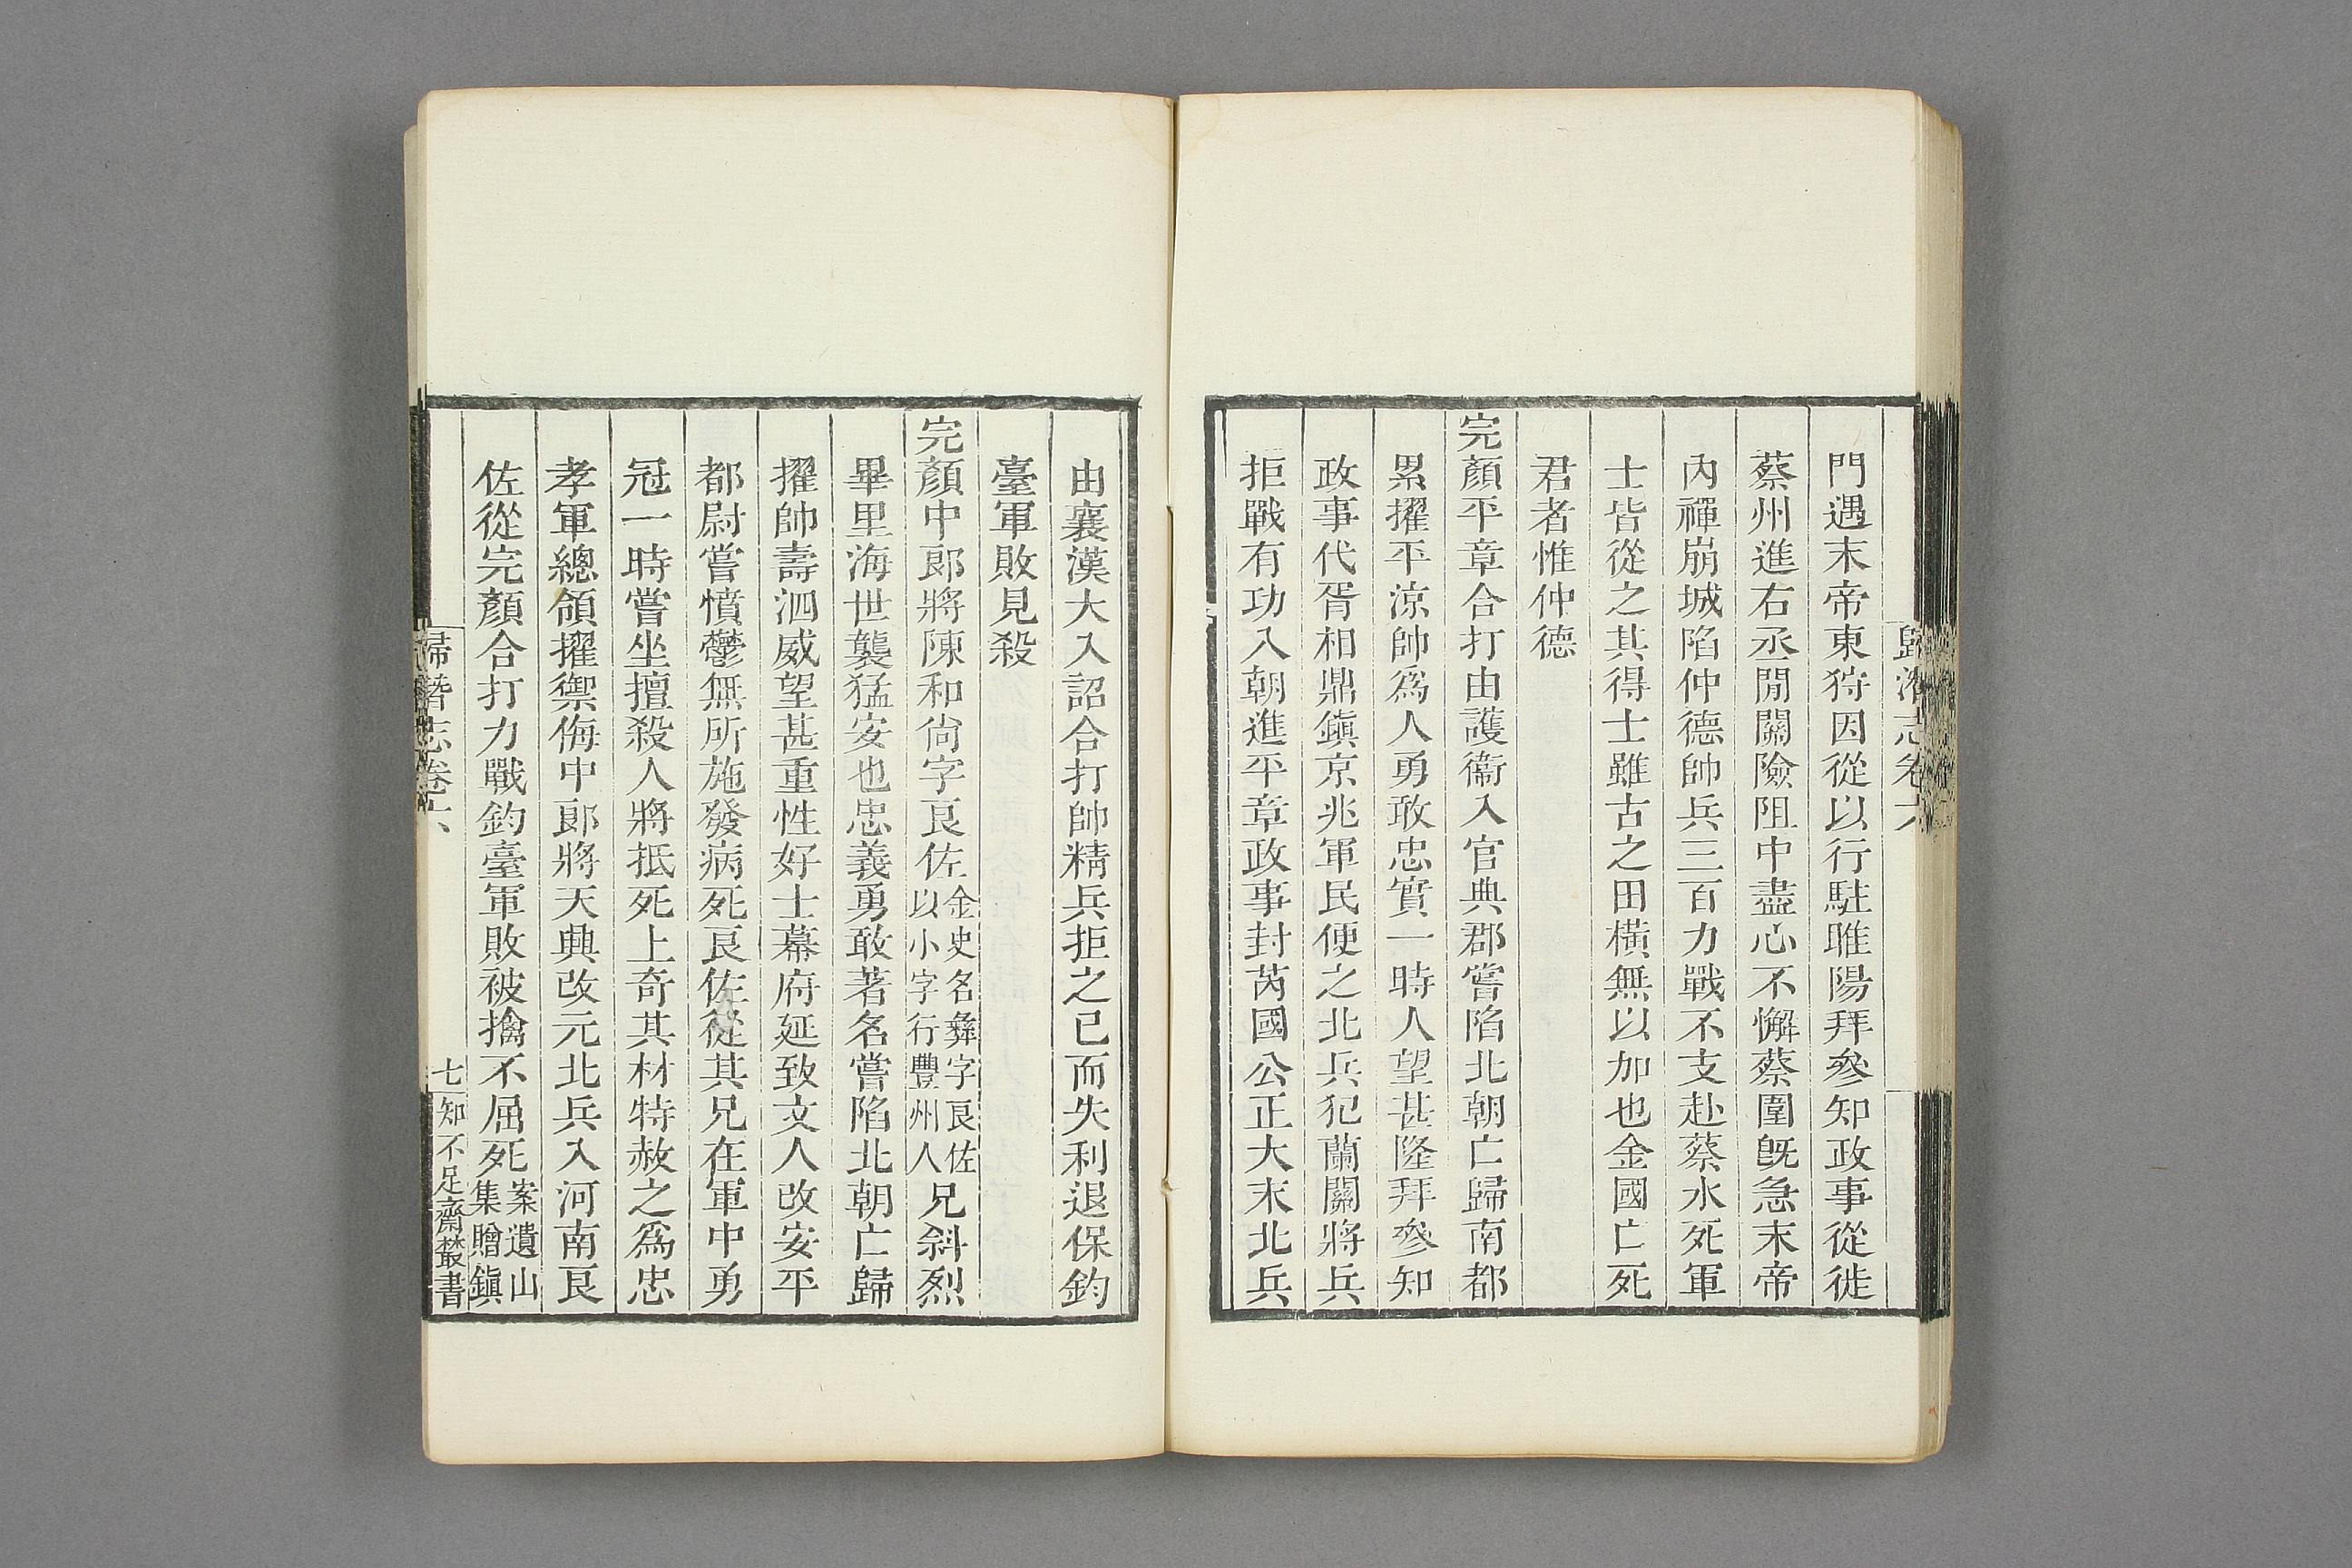 歸潛志卷六
門遇末帝東狩因從以行駐睢陽拜參知政事從徙
蔡州進右丞閒關險阻中盡心不懈蔡圍旣急末帝
內禪崩城陷仲德帥兵三百力戰不支赴蔡水死軍
士皆從之其得士雖古之田橫無以加也金國亡死
君者惟仲德
完顏平章合打由護衞入官典郡嘗陷北朝亡歸南都
累擢平涼帥爲人勇敢忠實一時人望甚隆拜參知
政事代胥相鼎鎭京兆軍民便之北兵犯蘭關將兵
拒戰有功入朝進平章政事封芮國公正大末北兵
由襄漢大入詔合打帥精兵拒之已而失利退保鈞
臺軍敗見殺
完顏中郞將陳和尙字良佐金史名彝字良佐以小字行豐州人兄斜烈
畢里海世襲猛安也忠義勇敢著名嘗陷北朝亡歸
擢帥壽泗威望甚重性好士幕府延致文人改安平
都尉嘗憤鬱無所施發病死良佐從其兄在軍中勇
冠一時嘗坐擅殺人將抵死上奇其材特赦之爲忠
孝軍總領擢禦侮中郞將天興改元北兵入河南良
佐從完顏合打力戰鈞臺軍敗被擒不屈死案遺山集贈鎭
歸潛志卷六 七 知不足齋叢書